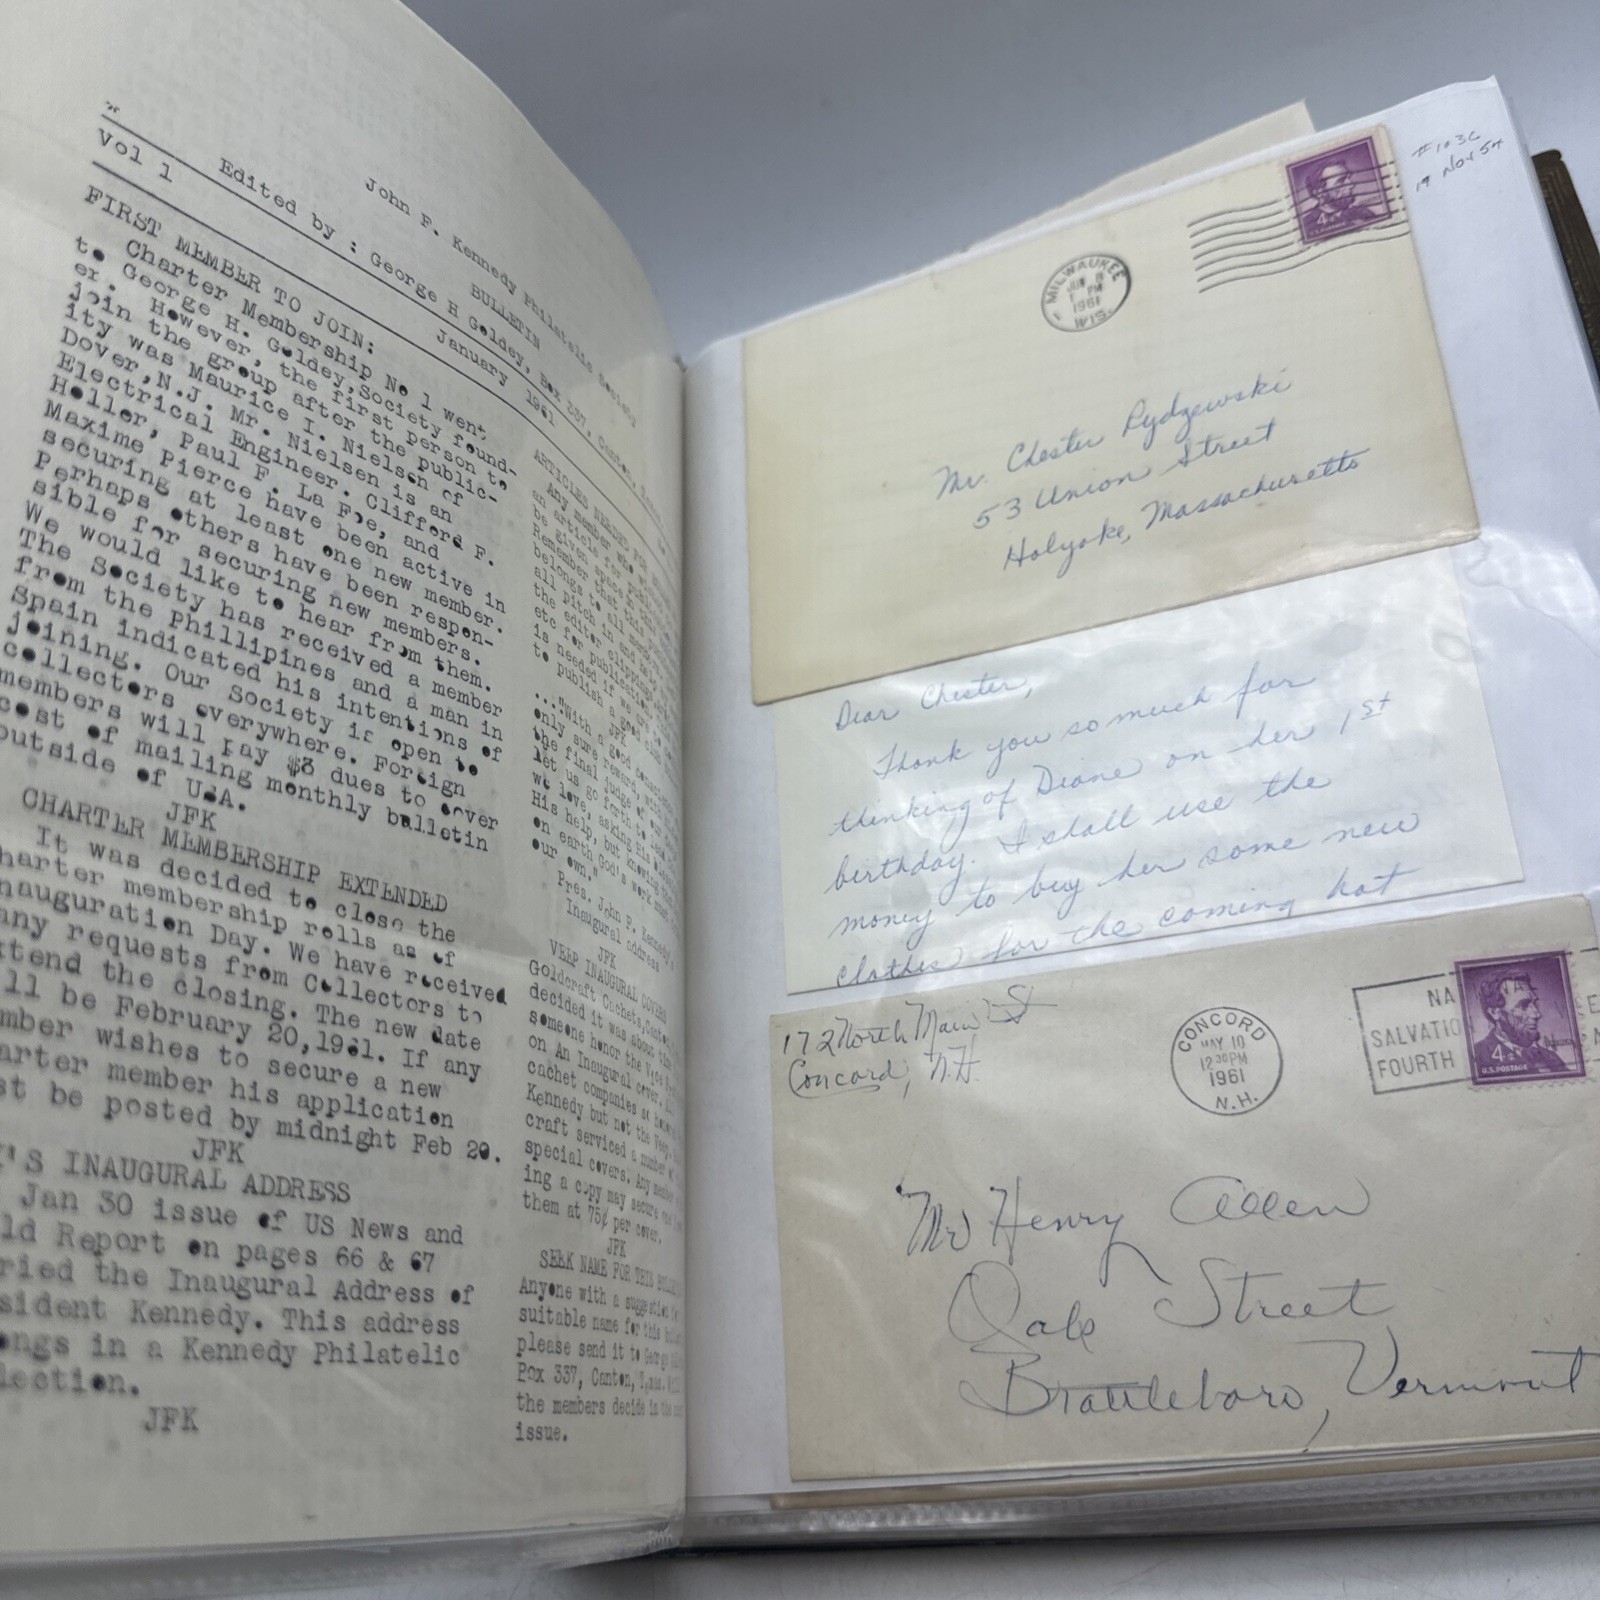 John F. Kennedy Philatelic Society
BULLETIN
Edited by : George H Goldey, Box 337, Canton,
Vol 1
January 1961
FIRST MEMBER TO JOIN:
Charter Membership No 1 went
to George H. Goldey, Society found-
er. However, the first person to
join the group after the public-
ity was Maurice I. Nielsen of
Dover, N.J. Mr. Nielsen is an
Electrical Engineer. Clifford F.
Holler, Paul F. La Foe, and
Maxime Pierce have been active in
securing at least one new member.
Perhaps others have been respon-
sible for securing new members.
We would like to hear from them.
The Society has received a member
from the Phillipines and a man in
Spain indicated his intentions of
joining. Our Society is open to
collectors everywhere. Foreign
members will pay $3 dues to cover
cost of mailing monthly bulletin
outside of USA.
JFK
CHARTER MEMBERSHIP EXTENDED
It was decided to close the
harter membership rolls as of
nauguration Day. We have received
any requests from Collectors to
xtend the closing. The new date
ll be February 20,1961. If any
mber wishes to secure a new
arter member his application
st be posted by midnight Feb 20.
JFK
'S INAUGURAL ADDRESS
Jan 30 issue of US News and
ld Report on pages 66 & 67
ried the Inaugural Address of
sident Kennedy. This address
ongs in a Kennedy Philatelic
lection.
JFK
ARTICLES NEEDED FOR
Any member who
an article for
be given space
Remember that this
belongs to all
all pitch in and
the editor clippings
etc for publication
is needed if we are to
to publish a good
JFK
..."With a good conscience
only sure reward, with
the final judge of our
let us go forth to lead
we love, asking His
His help, but knowing that
on earth God's work must
our own."
Pres. John F. Kennedy
Inaugural address
JFK
VEEP INAUGURAL COVERS
Goldcraft Cachets, Canton,
decided it was about time
someone honor the Vice
on An Inaugural cover.
cachet companies
Kennedy but not the Veep.
craft serviced a number of
special covers. Any member
ing a copy may secure
them at 75¢ per cover.
JFK
SEEK NAME FOR THIS
Anyone with a suggestion
suitable name for this
please send it to George
Box 337, Canton, Texas.
the members decide in the
issue.
#1036
19 Nov 54
MILWAUKEE
PM
1961
WIS.
4¢
U.S. POSTAGE
Mr. Chester Rydzewski
53 Union Street
Holyoke, Massachusetts
Dear Chester,
Thank you so much for
thinking of Diane on her 1st
birthday. I shall use the
money to buy her some new
clothes for the coming hot
172 North Main St
Concord, N.H.
CONCORD
MAY 10
12 30 PM
1961
N.H.
NA
SALVATIO
FOURTH
4¢
U.S. POSTAGE
Mr Henry Allen
Oak Street
Brattleboro, Vermont